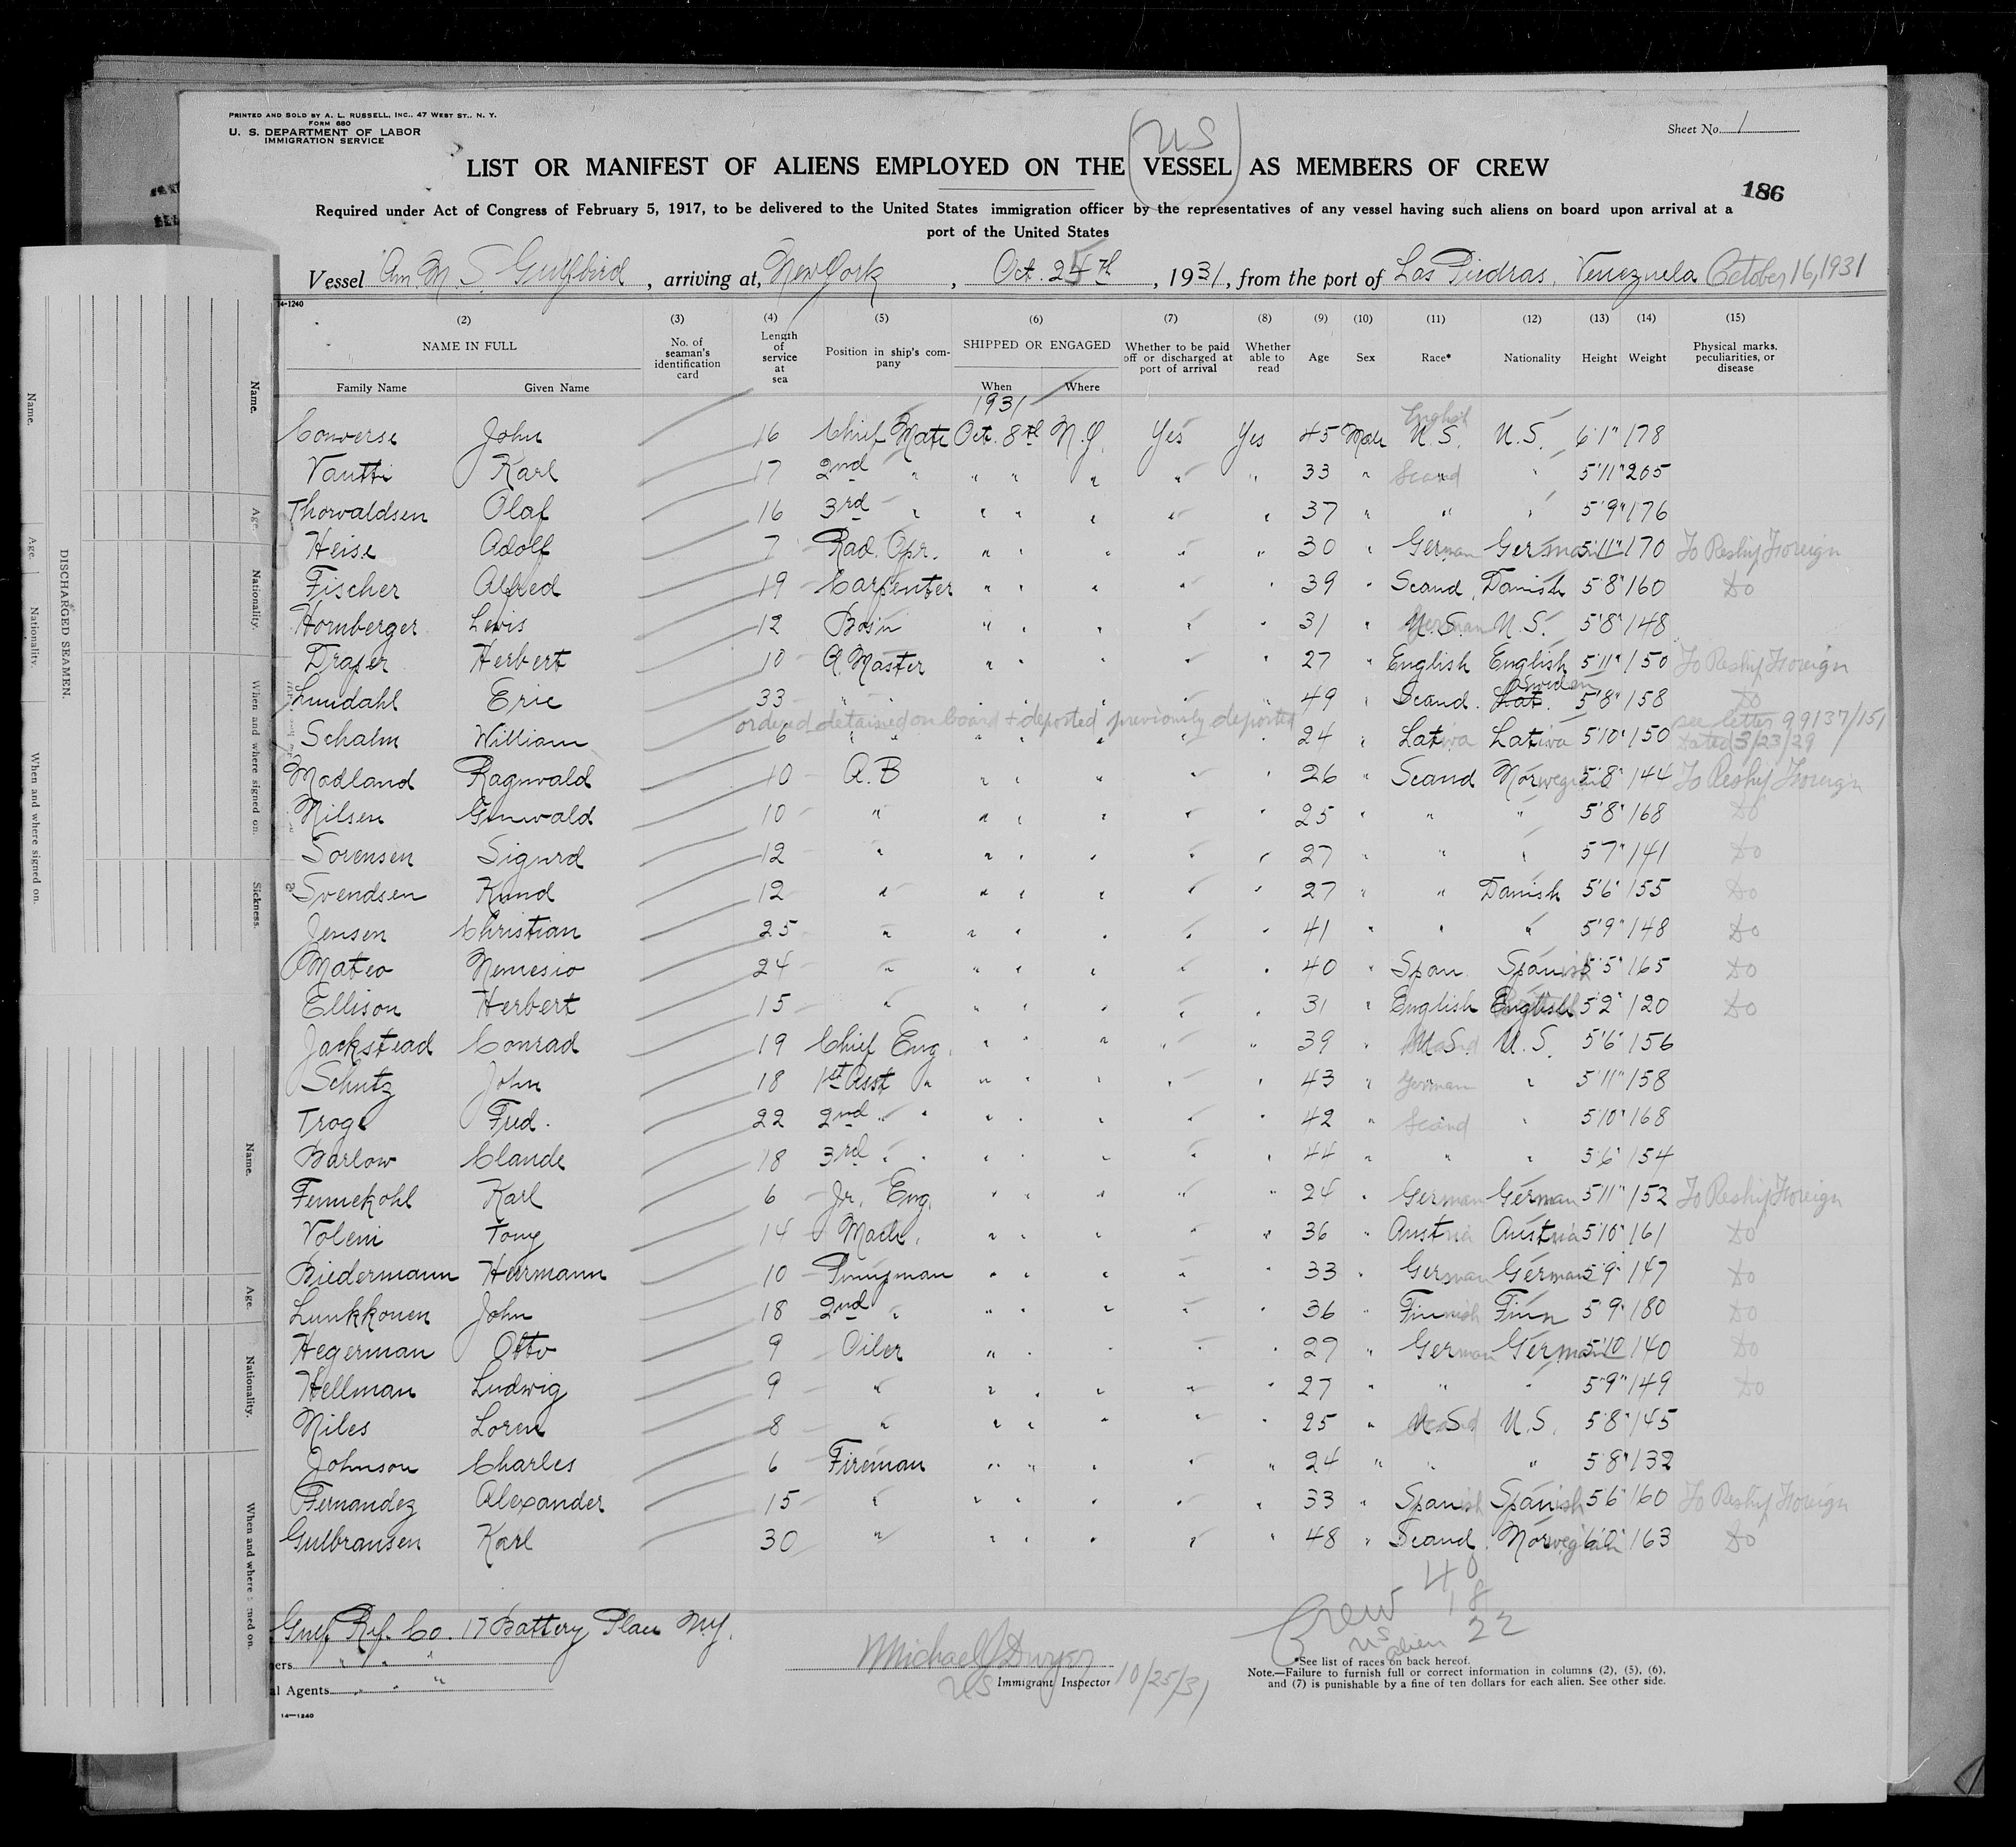 PRINTED AND SOLD BY A. L. RUSSELL, INC., 47 WEST ST., N. Y.
FORM 680
U. S. DEPARTMENT OF LABOR
IMMIGRATION SERVICE
US
Sheet No. 1
LIST OR MANIFEST OF ALIENS EMPLOYED ON THE VESSEL AS MEMBERS OF CREW
186
Required under Act of Congress of February 5, 1917, to be delivered to the United States immigration officer by the representatives of any vessel having such aliens on board upon arrival at a
port of the United States
Vessel Am. M. S. Gulfbird, arriving at, New York, Oct. 25th, 1931, from the port of Las Piedras, Venezuela October 16, 1931
14-1240
(2) (3) (4) (5) (6) (7) (8) (9) (10) (11) (12) (13) (14) (15)
NAME IN FULL No. of seaman's identification card Length of service at sea Position in ship's company SHIPPED OR ENGAGED Whether to be paid off or discharged at port of arrival Whether able to read Age Sex Race* Nationality Height Weight Physical marks, peculiarities, or disease
Family Name Given Name When Where
1931
English
Converse John 16 Chief Mate Oct. 8th N.Y. Yes Yes 45 Male U.S. U.S. 6'1" 178
Vantti Karl 17 2nd " " " " " " 33 " Scand " 5'11" 205
Thorvaldsen Olaf 16 3rd " " " " " " 37 " " " 5'9" 176
Heise Adolf 7 Rad. Opr. " " " " " 30 " German German 5'11" 170 To Reship Foreign
Fischer Alfred 19 Carpenter " " " " " 39 " Scand. Danish 5'8" 160 Do
Hornberger Lewis 12 Bos'n " " " " " 31 " U.S. German U.S. 5'8" 148
Draper Herbert 10 Q. Master " " " " " 27 " English English 5'11" 150 To Reship Foreign
Lundahl Eric 33 " " " " " " 49 " Scand. Lat. Sweden 5'8" 158 Do
ordered detained on board + deported previously deported see letter 99137/151
Schalm William 6 " " " " " " 24 " Latvia Latvia 5'10" 150 dated 3/23/29
Modland Ragnvald 10 A.B " " " " " 26 " Scand Norwegian 5'8" 144 To Reship Foreign
Nilsen Gunvald 10 " " " " " " 25 " " " 5'8" 168 Do
Sorensen Sigurd 12 " " " " " " 27 " " " 5'7" 141 Do
Svendsen Knud 12 " " " " " " 27 " " Danish 5'6" 155 Do
Jensen Christian 25 " " " " " " 41 " " " 5'9" 148 Do
Mateo Nemesio 24 " " " " " " 40 " Span Spanish 5'5" 165 Do
Ellison Herbert 15 " " " " " " 31 " English English 5'2" 120 Do
Jackstead Conrad 19 Chief Eng. " " " " " 39 " U.S. Scand U.S. 5'6" 156
Schutz John 18 1st Asst " " " " " " 43 " German " 5'11" 158
Troge Fred. 22 2nd " " " " " " " 42 " Scand " 5'10" 168
Barlow Claude 18 3rd " " " " " " " 44 " " " 5'6" 154
Fennekohl Karl 6 Jr. Eng. " " " " " 24 " German German 5'11" 152 To Reship Foreign
Volem Tony 14 Mach. " " " " " 36 " Austria Austria 5'10" 161 Do
Biedermann Herrmann 10 Pumpman " " " " " 33 " German German 5'9" 147 Do
Lunkkonen John 18 2nd " " " " " " 36 " Finnish Finn 5'9" 180 Do
Hegerman Otto 9 Oiler " " " " " 27 " German German 5'10 140 Do
Hellman Ludwig 9 " " " " " " 27 " " " 5'9" 149 Do
Niles Loren 8 " " " " " " 25 " U.S. Scand U.S. 5'8" 145
Johnson Charles 6 Fireman " " " " " 24 " " " 5'8" 132
Fernandez Alexander 15 " " " " " " 33 " Spanish Spanish 5'6" 160 To Reship Foreign
Gulbransen Karl 30 " " " " " " 48 " Scand. Norwegian 6'0" 163 Do
Crew 40
US 18
alien 22
Gulf Ref. Co. 17 Battery Place N.Y.
ners " " "
al Agents " " "
Michael J Dwyer
US Immigrant Inspector 10/25/31
*See list of races on back hereof.
Note.—Failure to furnish full or correct information in columns (2), (5), (6),
and (7) is punishable by a fine of ten dollars for each alien. See other side.
14—1240
DISCHARGED SEAMEN.
Name. Age. Nationality. When and where signed on.
Name. Age. Nationality. When and where signed on. Sickness.
Name. Age. Nationality. When and where signed on.